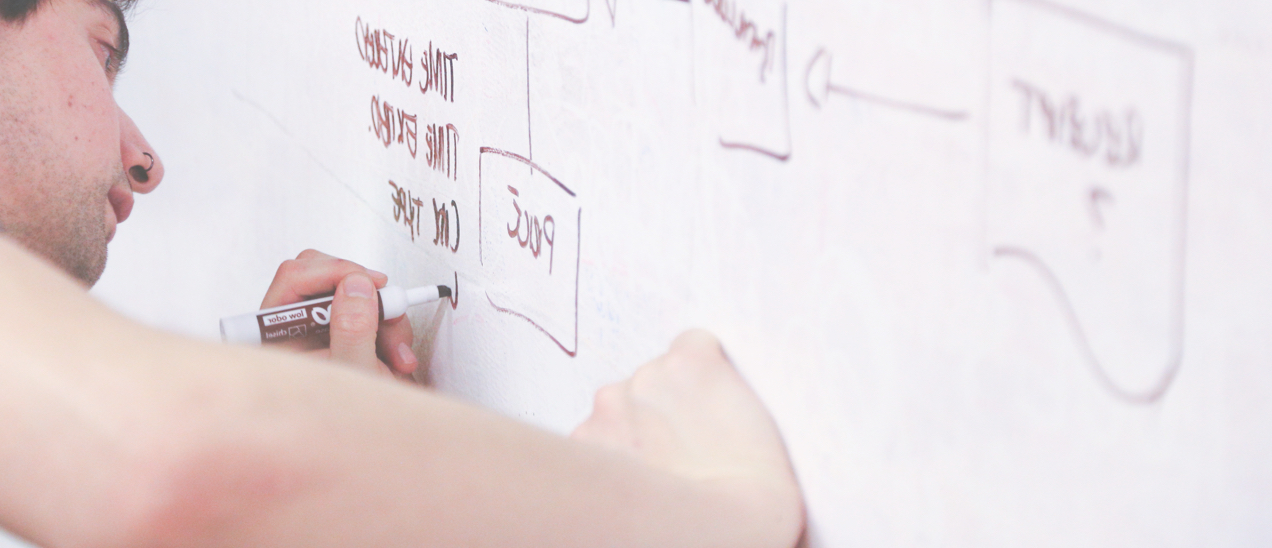 TIME ENTERED
TIME EXITED.
CAR TYPE
PRICE
RECEIPT
?
low odor
chisel